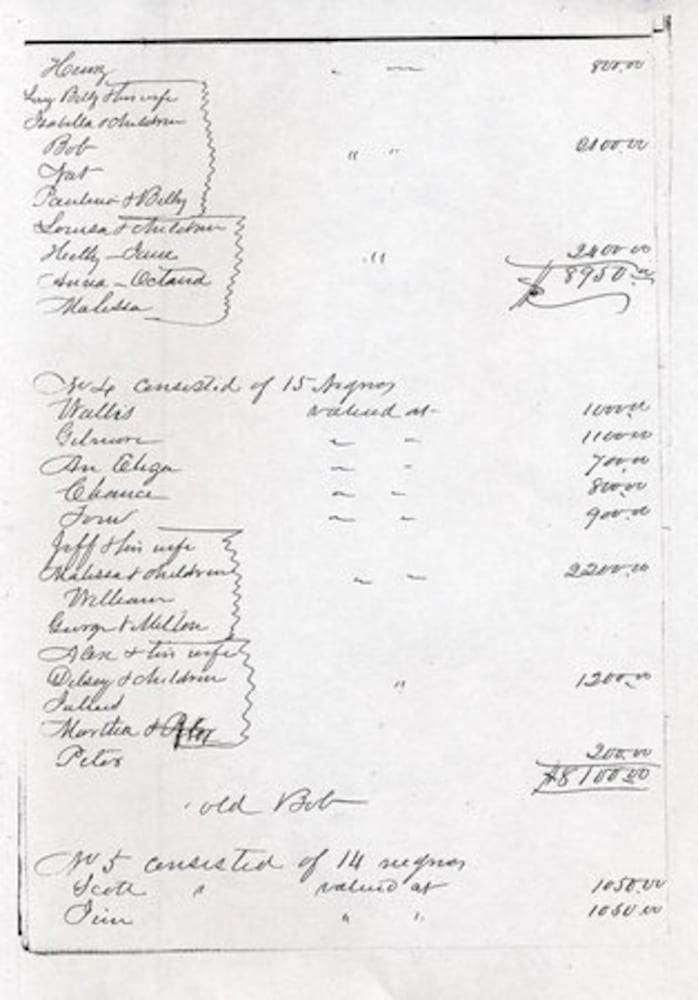 Henry " " 800.00
Billy & his wife
Isabella & children
Bob " " 00.00
Nat
Paulina & Billy
Louisa & children
Hetty - Jane " 2400.00
Anna - Octavia $8950.00
Malessa
No 4 consisted of 15 Negros
Wallis valued at 1000.00
Gilmore " " 1100.00
An " " 700.00
Chance " " 800.00
Tom " " 900.00
Jeff & his wife
Malissa & children " " 2200.00
William
George & Milton
Alex & his wife
Delsey & children " 1200.00
Julius
Martha &
Peter 200.00
$8100.00
old Bob
No 5 consisted of 14 negros
Scott " valued at 1050.00
Jim " " 1050.00